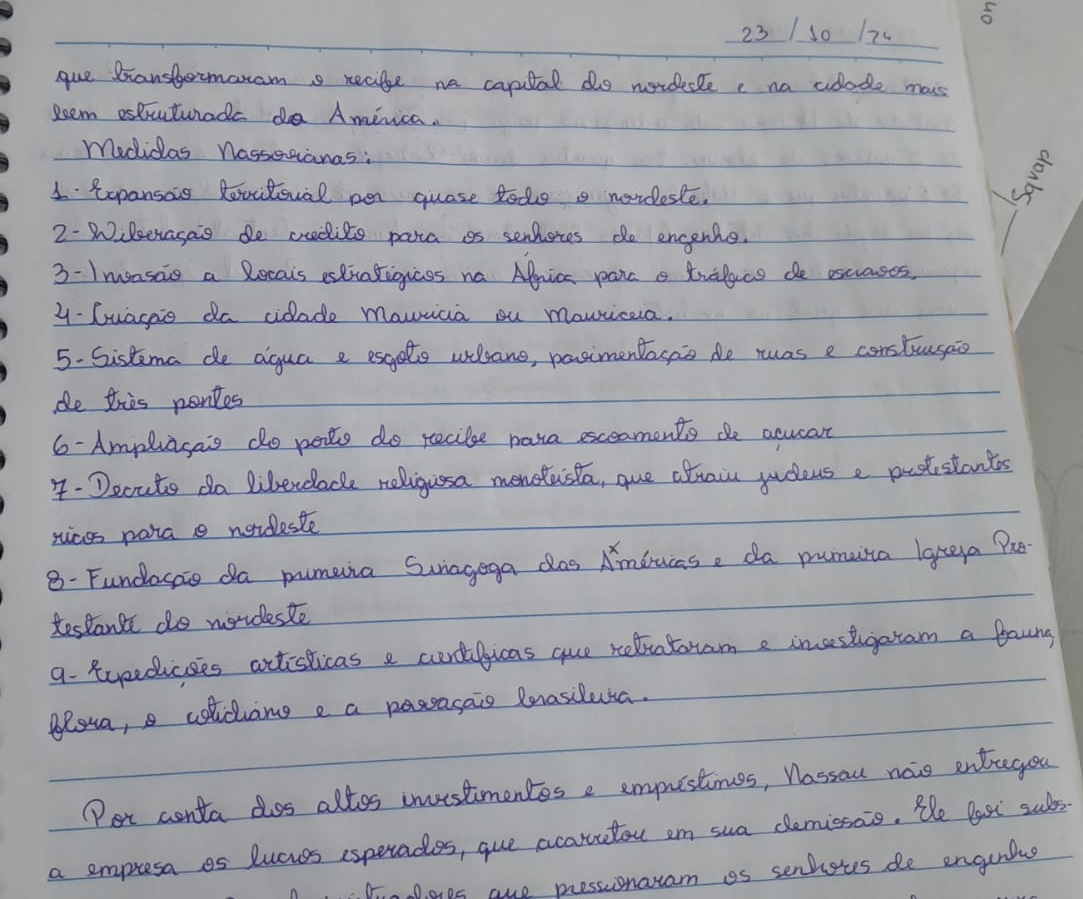 23/10/24
que transformaram o recife na capital do nordeste e na cidade mais
bem estruturada da América.
Medidas Nassovianas:
1- Expansão territorial por quase todo o nordeste.
2- Liberação de credito para os senhores de engenho.
3- Invasão a locais estratégicos na África para o tráfico de escravos.
4- Criação da cidade Mauricia ou Mauriceia.
5- Sistema de água e esgoto urbano, pavimentação de ruas e construção
de três pontes
6- Ampliação do porto do recife para escoamento de açucar
7- Decreto da liberdade religiosa monoteísta, que atraiu judeus e protestantes
ricos para o nordeste
8- Fundação da primeira Sinagoga das Américas e da primeira Igreja Pro-
testante do nordeste
9- Expedições artísticas e científicas que retrataram e investigaram a fauna,
flora, o cotidiano e a                brasileira.
Por conta dos altos investimentos e empréstimos, Nassau não entregou
a empresa os lucros esperados, que acarretou em sua demissão. Ele foi subs-
que pressionaram os senhores de engenho